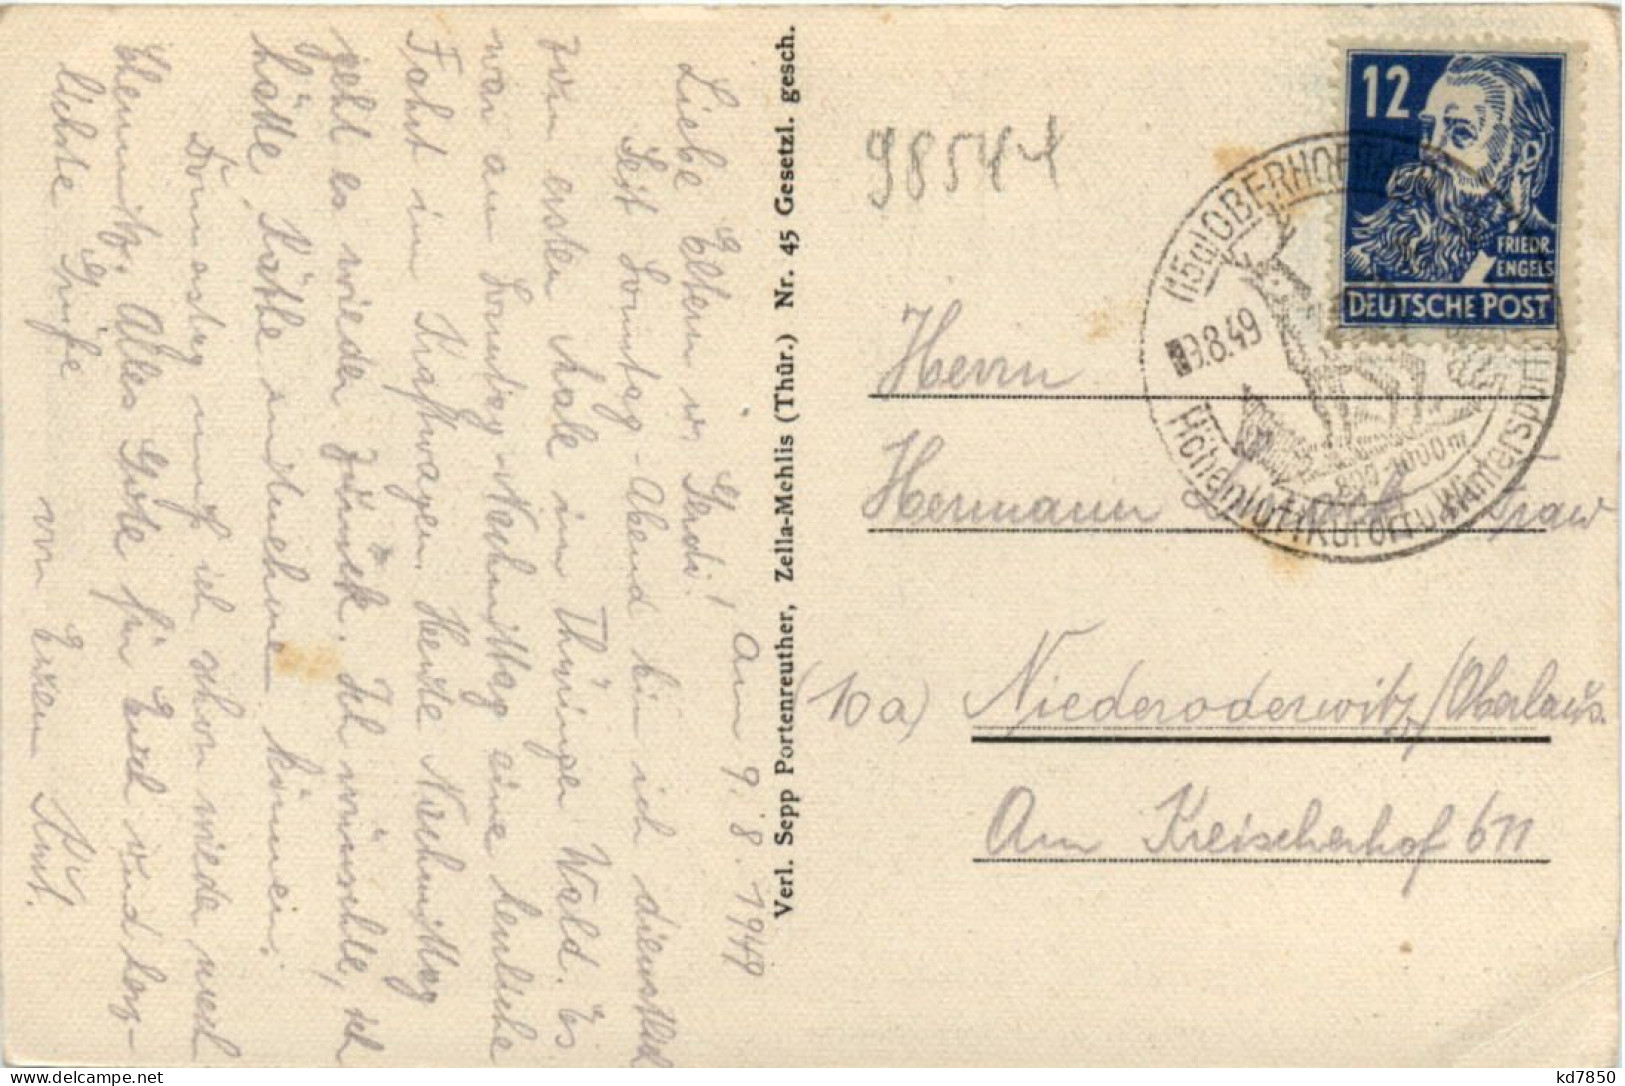 am 9. 8. 1949
Liebe Eltern u. Gerdi!
Seit Sonntag-Abend bin ich dienstlich
zum ersten Male im Thüringer Wald. Es
war am Sonntag-Nachmittag eine herrliche
Fahrt im Kraftwagen. Heute Nachmittag
geht es wieder zurück. Ich wünschte, ich
hätte
Donnerstag muß ich schon wieder nach
Chemnitz. Alles Gute für Euch und herz-
lichste Grüße von Eurem Kurt.
Verl. Sepp Portenreuther, Zella-Mehlis (Thür.) Nr. 45 Gesetzl. gesch.
98544
12
FRIEDR.
ENGELS
DEUTSCHE POST
(15a) OBERHOF
9.8.49
800-1000 m
Höhenluftkurort u. Wintersport
Herrn
Hermann Frau
(10a) Niederoderwitz/Oberlaus.
Am Kreischerhof 67
kd7850